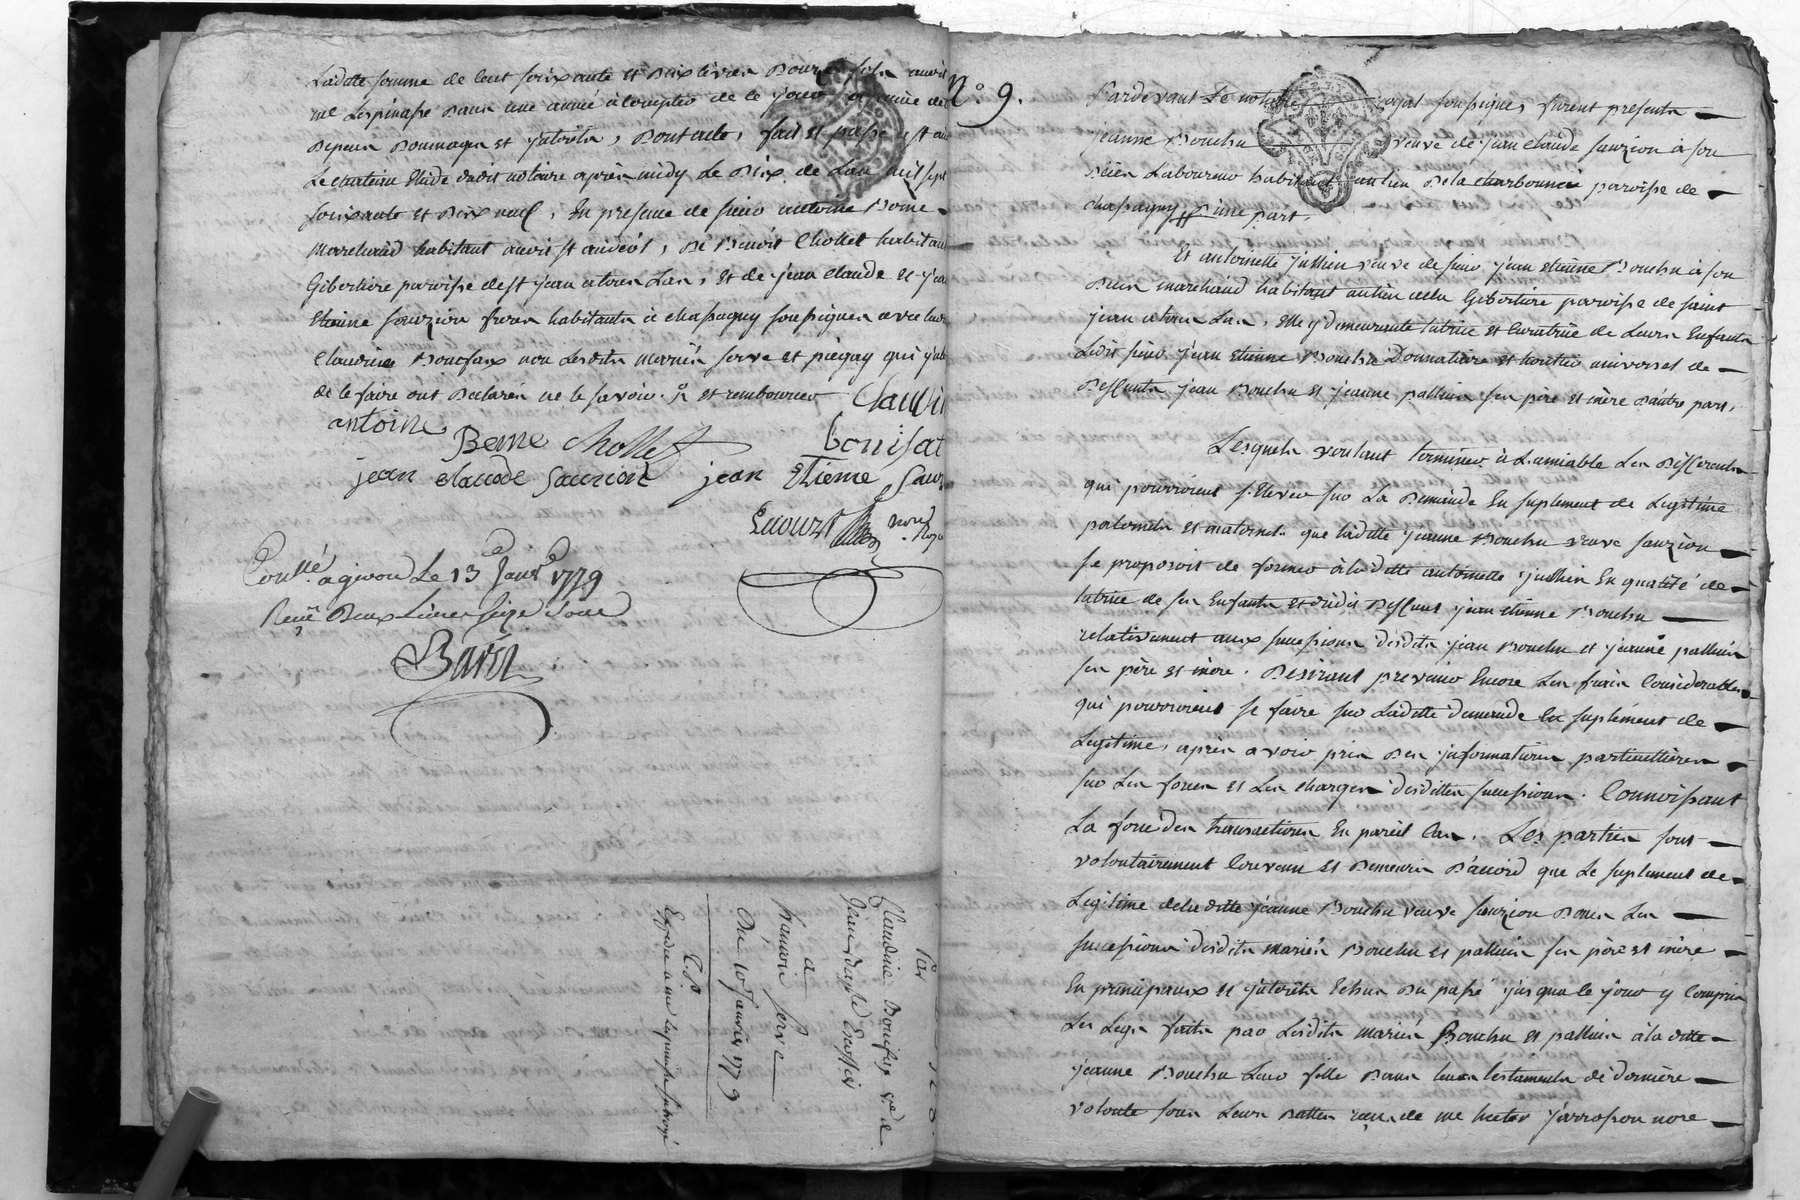 Ladite somme de cent soixante et dix livres
me Lespinasse dans une année à compter de ce jour a peine de
depens dommages et jnterets, Dont acte, fait et passé
Le château Etude dudit notaire après midy Le Dix de L'an mil sept
soixante et Dix neuf, En presence de sieur antoine Berne
Marchand habitant audit st andéol, De Benoit Chollet habitant
Gibertiere parroisse de st jean a toulas, Et de jean claude et jean
Etienne sauzion freres habitants à chassagny soussignés avec lad.
Claudine Bonifax non Lesdits mariés serve et piegay qui
de le faire ont Declarés ne le savoir. et rembourser
Claudi
antoine Berne Chollet bonifat
jean claude Saurion jean Etienne Sau
not. Roya
Conllé. a givors Le 13 Janv. 1779
Reçu Deux Livres seize sous
Claudine Bonifax ve. de
a
framion serve
Du 10 janvier 1779
Expédié a me Lespinasse subrogé
N.° 9.
Pardevant Le notaire royal soussigné, furent presents
jeanne Bouchu veuve de jean claude sauzion à son
vivant Laboureur habitante au lieu de la charbonniere parroisse de
chassagny d'une part.
Et antoinette jullien veuve de sieur jean etienne Bouchu à son
vivant marchand habitant au lieu de la Gibertiere parroisse de saint
jean a toulas, Elle y demeurante tutrice et curatrice de Leurs Enfants
Ledit sieur jean Etienne Bouchu Donnataire et heritier universel de
Deffunts jean Bouchu et jeanne palluis ses père et mère D'autre part.
Lesquels voulant terminer à L'amiable Les Differents
qui pourroient s'Elever sur La Demande En suplement de Legitime
paternelle et maternelle que ladite jeanne Bouchu veuve sauzion
se proposoit de former à ladite antoinette jullien En qualité de
tutrice de ses Enfants et dudit Deffunt jean etienne Bouchu
relativement aux successions desdits jean Bouchu et jeanne palluis
ses père et mère. Desirant prevenir Encore Les frais Considerables
qui pourroient se faire sur Ladite demande En suplement de
Legitime, après avoir pris Des jnformations particullieres
sur Les forces et Les charges desdittes successions. Connoissant
La force des transactions En pareil Cas. Les parties sont
volontairement Convenu et Demeurés D'accord que Le suplement de
Legitime de ladite jeanne Bouchu veuve sauzion Dans Les
successions desdits mariés Bouchu et palluis ses père et mère
En principaux et jnterets Echus Du passé jusqu'a ce jour y Compris
Les Legs faits par Lesdits mariés Bouchu et palluis à la ditte
jeanne Bouchu Leur fille Dans leurs testaments de derniere
volonté sous Leurs Dattes reçus de me hector jarrosson notre